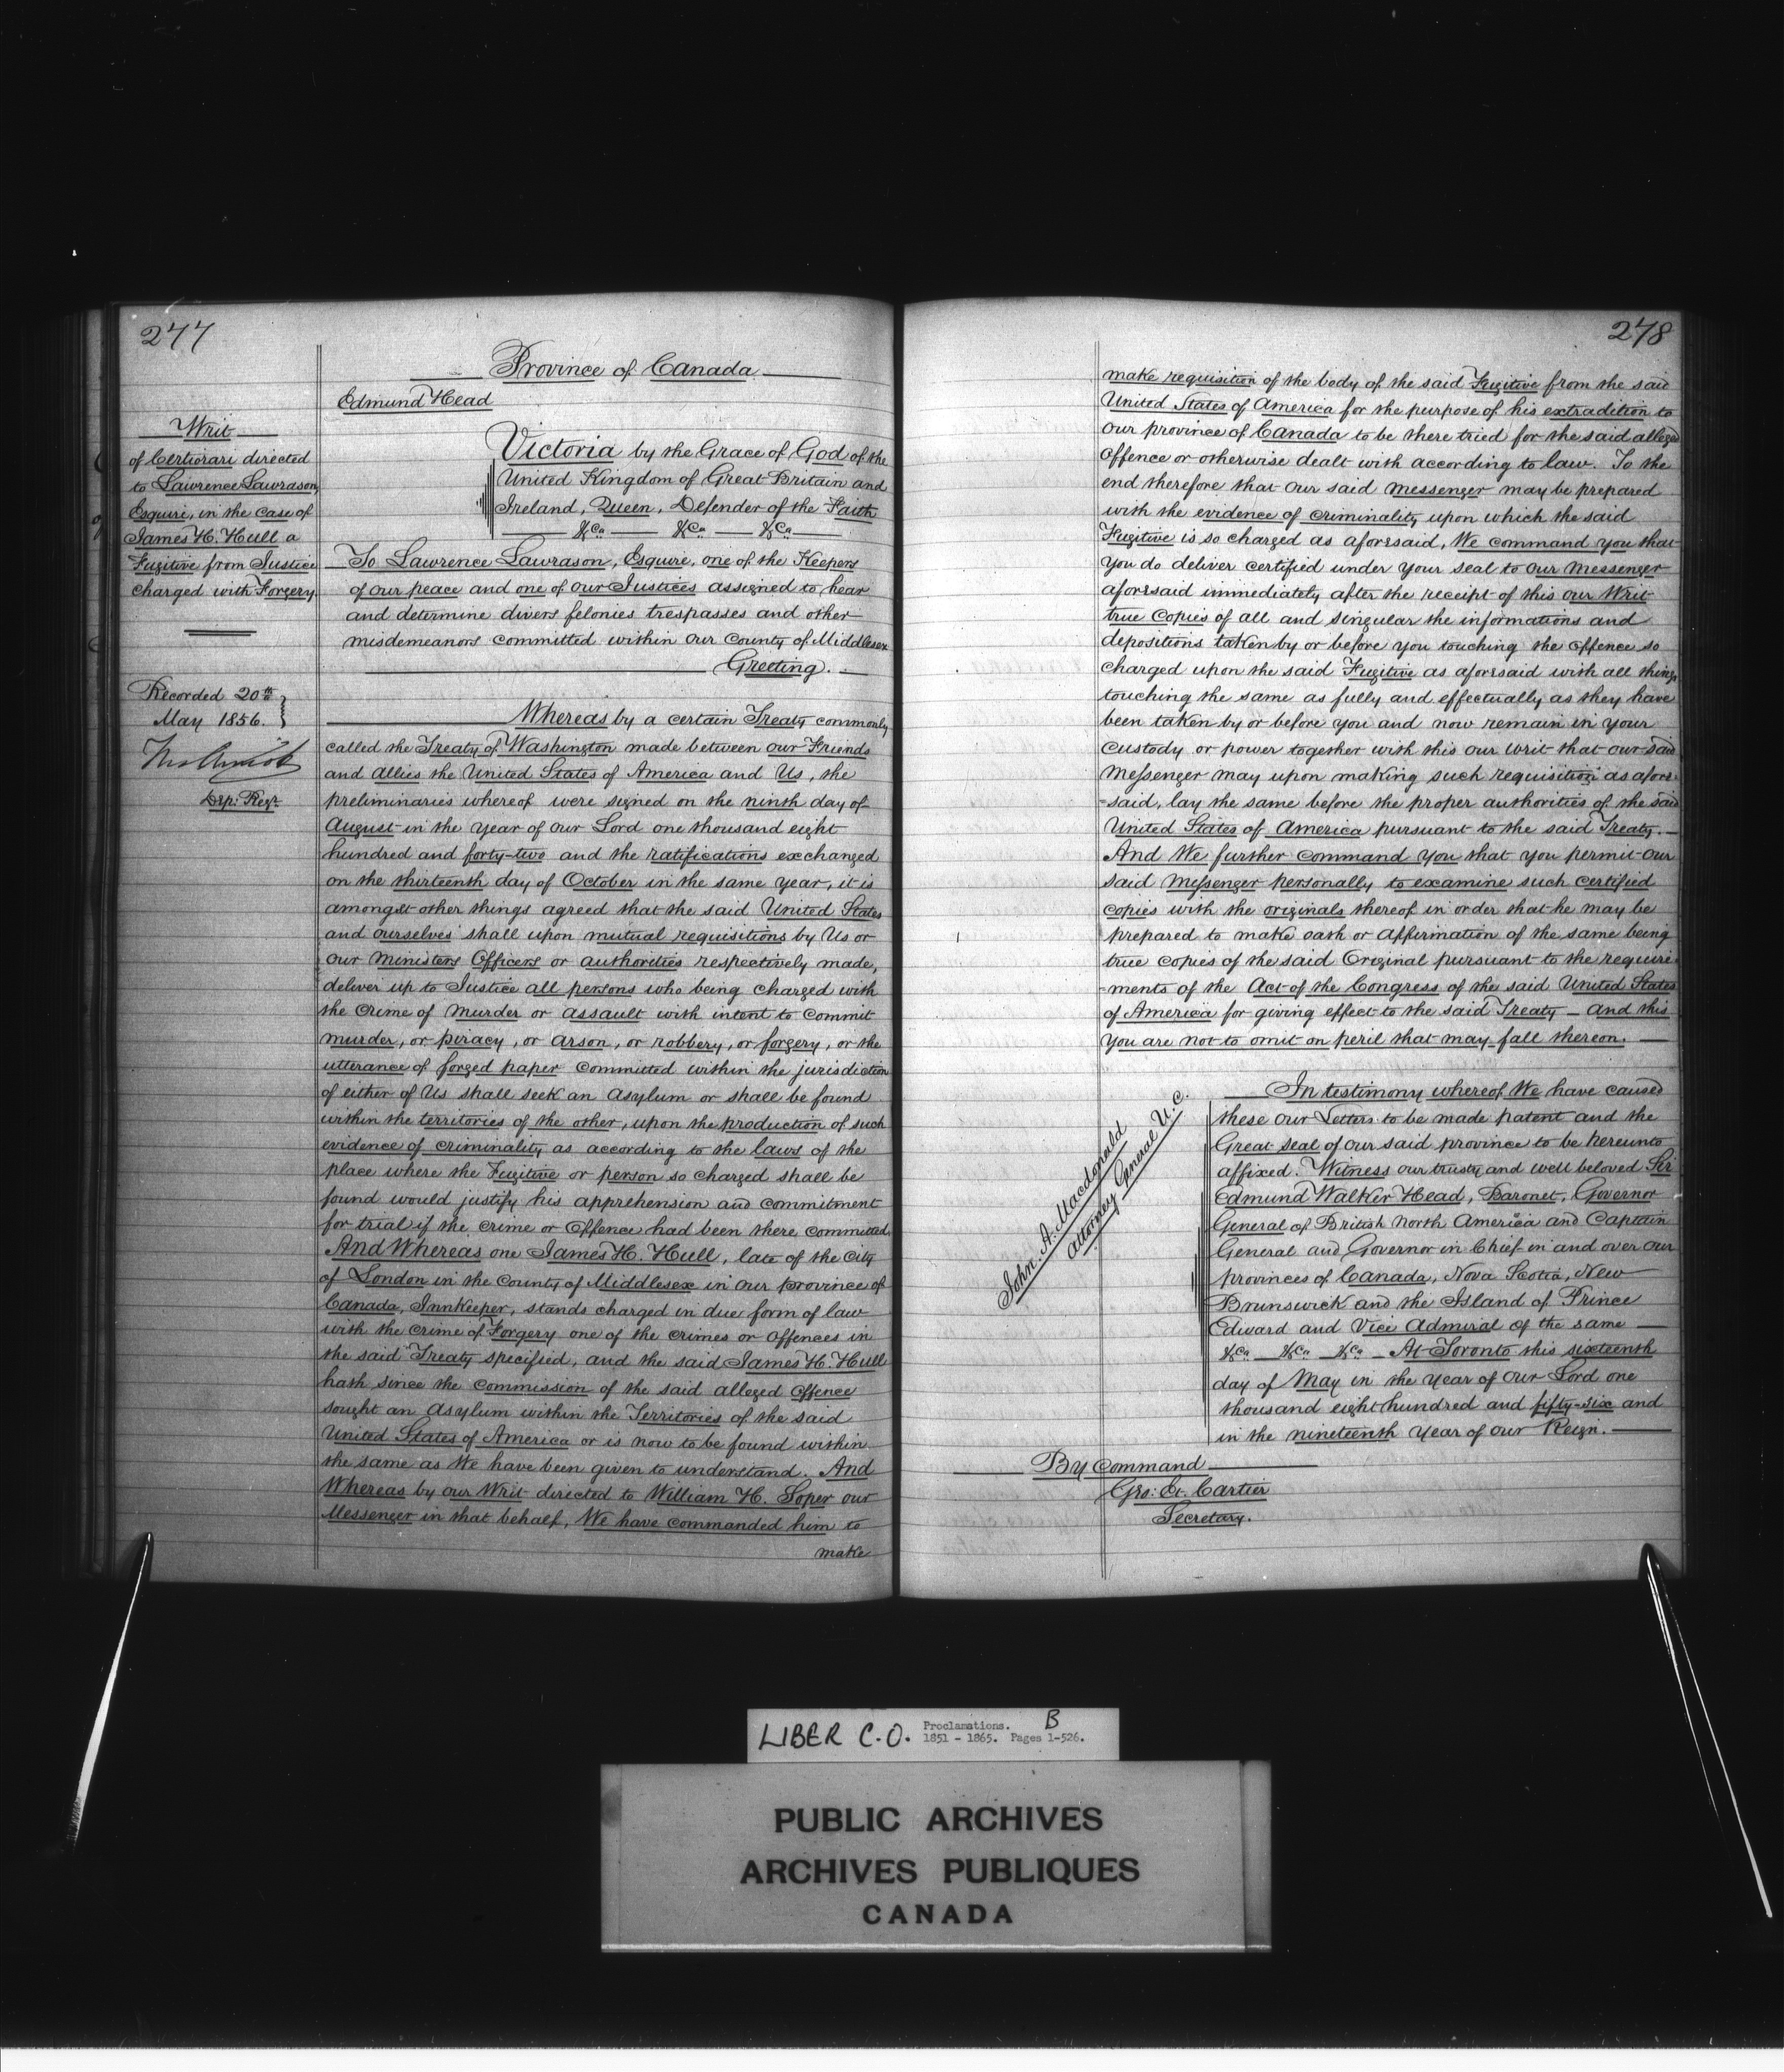 277
Province of Canada
Edmund Head
Writ
of Certiorari directed
to Lawrence Lawrason,
Esquire, in the case of
James H. Hull a
Fugitive from Justice
charged with Forgery.
Recorded 20th
May 1856.
Dep: Regr.
Victoria by the Grace of God of the
United Kingdom of Great Britain and
Ireland, Queen, Defender of the Faith
&ca &ca &ca
To Lawrence Lawrason, Esquire, one of the Keepers
of our peace and one of our Justices assigned to hear
and determine divers felonies trespasses and other
misdemeanors committed within our County of Middlesex
Greeting.
Whereas by a certain Treaty commonly
called the Treaty of Washington made between our Friends
and Allies the United States of America and Us, the
preliminaries whereof were signed on the ninth day of
August in the year of our Lord one thousand eight
hundred and forty-two and the ratifications exchanged
on the thirteenth day of October in the same year, it is
amongst other things agreed that the said United States
and ourselves shall upon mutual requisitions by Us or
our Ministers Officers or authorities respectively made,
deliver up to Justice all persons who being charged with
the crime of Murder or assault with intent to commit
murder, or piracy, or arson, or robbery, or forgery, or the
utterance of forged paper committed within the jurisdiction
of either of Us shall seek an Asylum or shall be found
within the territories of the other, upon the production of such
evidence of criminality as according to the laws of the
place where the Fugitive or person so charged shall be
found would justify his apprehension and commitment
for trial if the crime or Offence had been there committed
And Whereas one James H. Hull, late of the City
of London in the County of Middlesex in our province of
Canada, Innkeeper, stands charged in due form of law
with the crime of Forgery one of the crimes or offences in
the said Treaty specified, and the said James H. Hull
hath since the commission of the said alleged offence
sought an asylum within the Territories of the said
United States of America or is now to be found within
the same as We have been given to understand. And
Whereas by our Writ directed to William H. Soper our
Messenger in that behalf, We have commanded him to
make
278
make requisition of the body of the said Fugitive from the said
United States of America for the purpose of his extradition to
our province of Canada to be there tried for the said alleged
offence or otherwise dealt with according to law. To the
end therefore that our said Messenger may be prepared
with the evidence of criminality upon which the said
Fugitive is so charged as aforesaid, We command you that
you do deliver certified under your seal to our Messenger
aforesaid immediately after the receipt of this our Writ
true copies of all and singular the informations and
depositions taken by or before you touching the offence so
charged upon the said Fugitive as aforesaid with all things
touching the same as fully and effectually as they have
been taken by or before you and now remain in your
custody or power together with this our writ that our said
Messenger may upon making such requisition as afore-
-said, lay the same before the proper authorities of the said
United States of America pursuant to the said Treaty.
And We further command you that you permit our
said Messenger personally to examine such certified
copies with the originals thereof in order that he may be
prepared to make oath or affirmation of the same being
true copies of the said Original pursuant to the require-
-ments of the Act of the Congress of the said United States
of America for giving effect to the said Treaty – and this
you are not to omit on peril that may fall thereon.
John. A. Macdonald
Attorney General U.C.
In testimony whereof We have caused
these our Letters to be made patent and the
Great Seal of our said province to be hereunto
affixed. Witness our trusty and well beloved Sir
Edmund Walker Head, Baronet, Governor
General of British North America and Captain
General and Governor in Chief in and over our
provinces of Canada, Nova Scotia, New
Brunswick and the Island of Prince
Edward and Vice Admiral of the same
&ca &ca &ca At Toronto this sixteenth
day of May in the year of our Lord one
thousand eight hundred and fifty-six and
in the nineteenth year of our Reign.
By Command
Geo: Et. Cartier
Secretary.
LIBER C.O. Proclamations. B
1851 - 1865. Pages 1-526.
PUBLIC ARCHIVES
ARCHIVES PUBLIQUES
CANADA